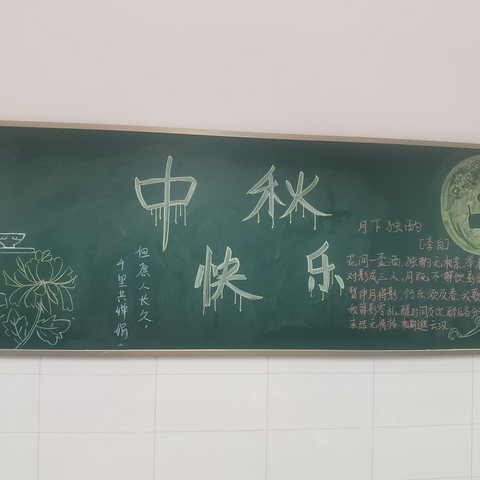 中秋
快乐
但愿人长久，
千里共婵娟。
月下独酌
[李白]
花间一壶酒，独酌无相亲，举
对影成三人，月既不解饮，影
暂伴月将影，行乐须及春，我歌
我舞影零乱，醒时同交欢，醉后各分
永结无情游，相期邈云汉。